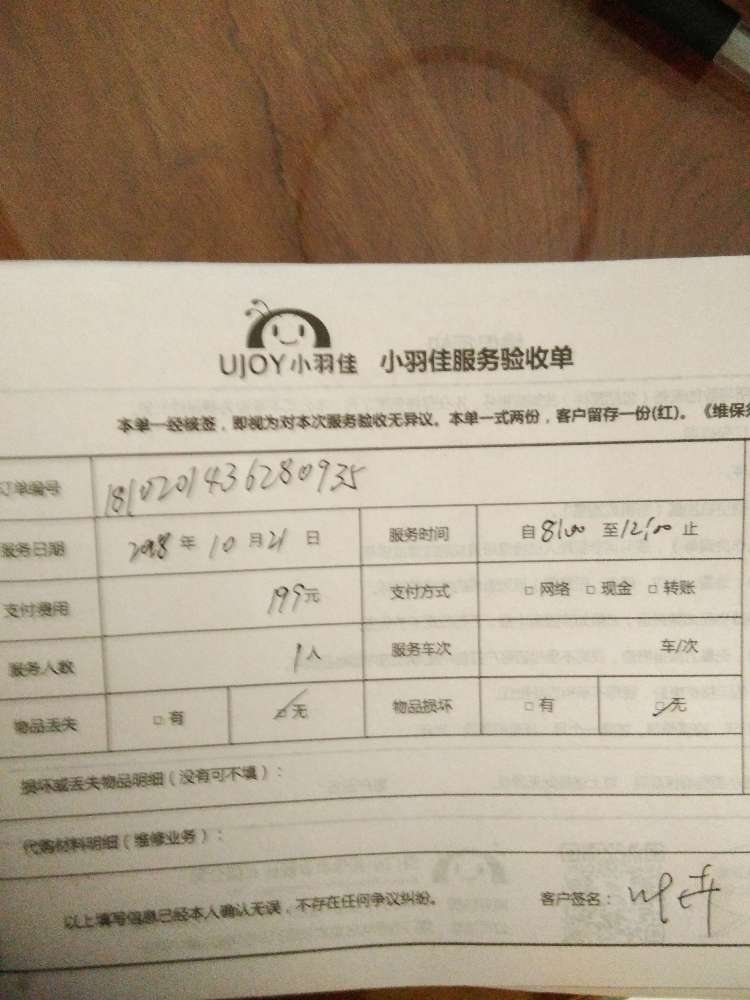 UJOY小羽佳 小羽佳服务验收单
本单一经核签，即视为对本次服务验收无异议。本单一式两份，客户留存一份(红)。《维保条
订单编号 181020143628093­5
服务日期 2018 年 10 月 21 日 服务时间 自 8:00 至 12:00 止
支付费用 199元 支付方式 □ 网络 □ 现金 □ 转账
服务人数 1人 服务车次 车/次
物品丢失 □ 有 ☑ 无 物品损坏 □ 有 ☑ 无
损坏或丢失物品明细（没有可不填）：
代购材料明细（维修业务）：
以上填写信息已经本人确认无误，不存在任何争议纠纷。 客户签名：